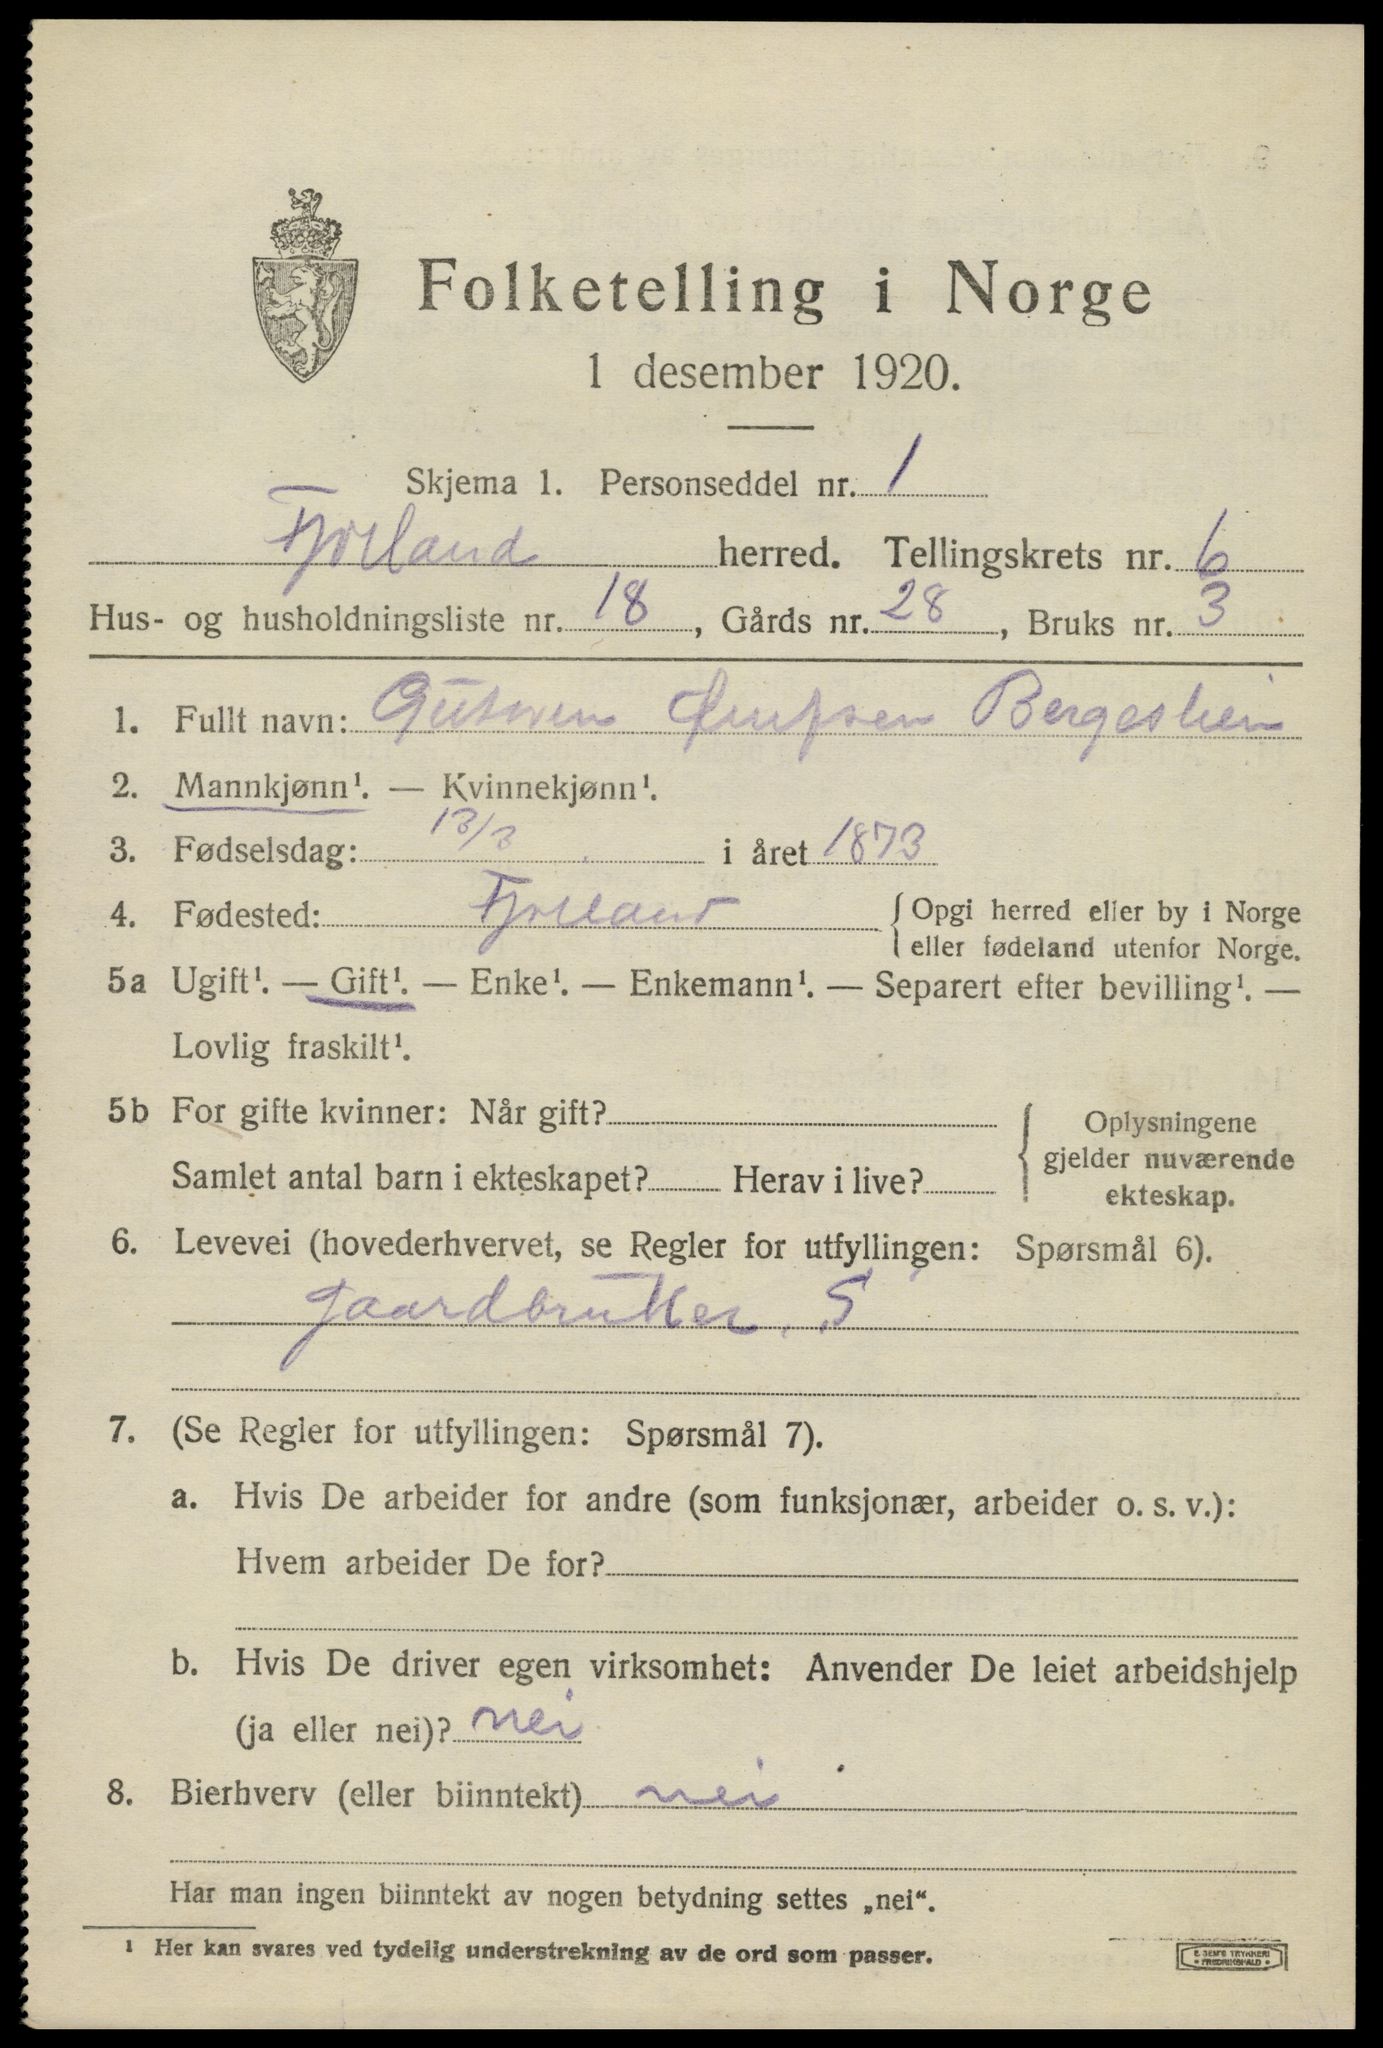 Folketelling i Norge
1 desember 1920.
Skjema 1. Personseddel nr. 1
herred. Tellingskrets nr. 6
Hus- og husholdningsliste nr. 18, Gårds nr. 28, Bruks nr. 3
1. Fullt navn:
2. Mannkjønn¹. — Kvinnekjønn¹.
3. Fødselsdag: 13/3 i året 1873
4. Fødested: { Opgi herred eller by i Norge
eller fødeland utenfor Norge.
5a Ugift¹. — Gift¹. — Enke¹. — Enkemann¹. — Separert efter bevilling¹. —
Lovlig fraskilt¹.
5b For gifte kvinner: Når gift?
Samlet antal barn i ekteskapet? Herav i live?
{ Oplysningene
gjelder nuværende
ekteskap.
6. Levevei (hovederhvervet, se Regler for utfyllingen: Spørsmål 6).
Gaardbruker. S
7. (Se Regler for utfyllingen: Spørsmål 7).
a. Hvis De arbeider for andre (som funksjonær, arbeider o. s. v.):
Hvem arbeider De for?
b. Hvis De driver egen virksomhet: Anvender De leiet arbeidshjelp
(ja eller nei)? nei
8. Bierhverv (eller biinntekt) nei
Har man ingen biinntekt av nogen betydning settes „nei“.
¹ Her kan svares ved tydelig understrekning av de ord som passer.
E. SEM'S TRYKKERI
FREDRIKSHALD